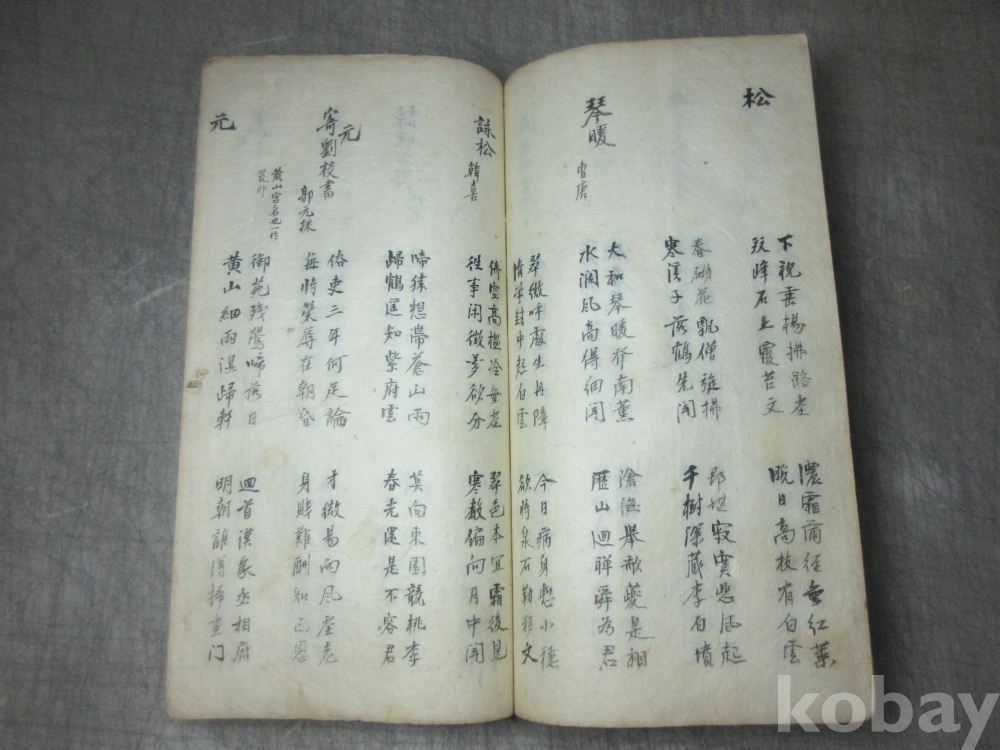 松
下視垂楊拂路塵
双峰石上覆苔文
濃霜滿徑無紅葉
晩日高枝有白雲
春砌花飄僧旋掃
寒溪子落鶴先聞
那堪寂寞悲風起
千樹深藏李白墳
琴暖
曹唐
大和琴暖發南薰
水闊風高得細聞
滄海擧歌夔是相
歷山迴眸舜為君
翠微呼處生丹障
情禁封中起白雲
今日病身慙小隱
欲將泉石勒移文
詠松
韓喜
倚空高檻冷無塵
往事閑徵夢欲分
翠色本宜霜後見
寒聲偏向月中聞
啼猿想帶蒼山雨
歸鶴遥知紫府雲
莫向東園競桃李
春光還是不容君
元
寄劉校書
郭元振
黃山宮名也一作
俗吏三年何足論
每將榮辱在朝昏
才微易向風塵老
身賤難酬知己恩
元
御苑殘鶯啼落日
黃山細雨濕歸軒
迴首漢家丞相府
明朝誰得掃重門
kobay